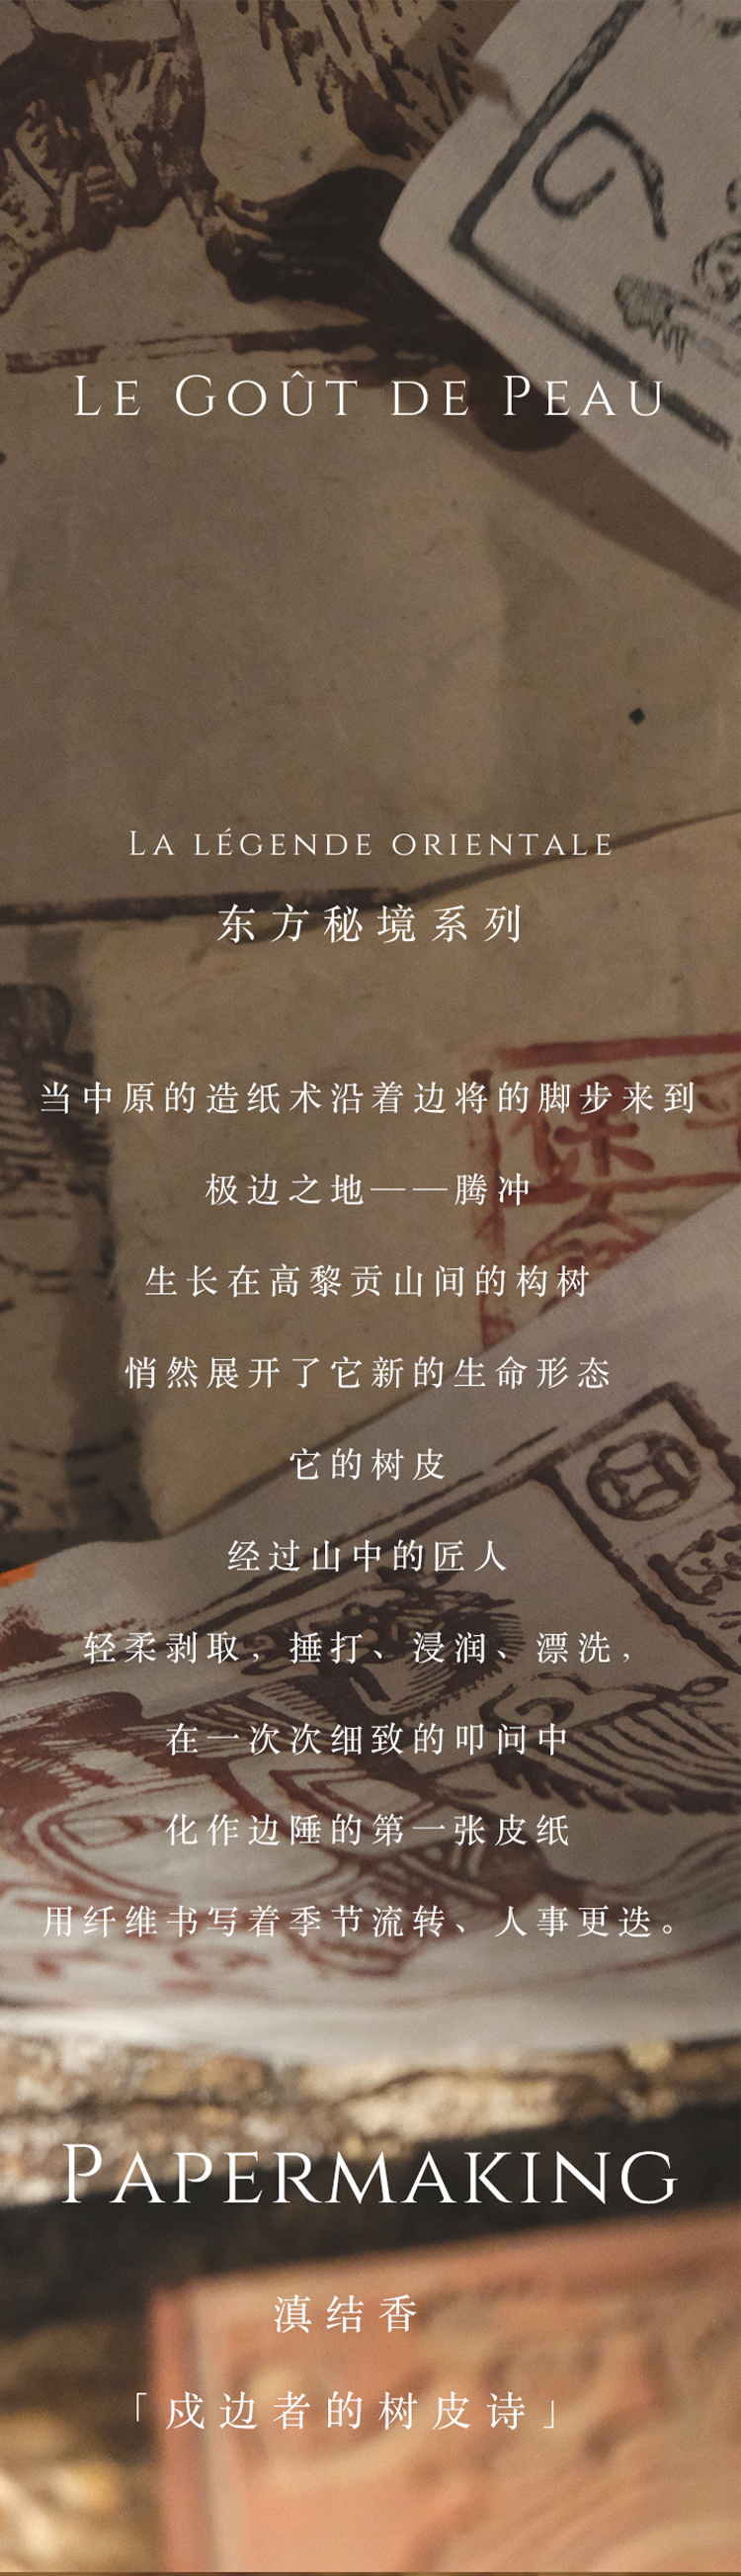 LE GOÛT DE PEAU
LA LÉGENDE ORIENTALE
东方秘境系列
当中原的造纸术沿着边将的脚步来到
极边之地——腾冲
生长在高黎贡山间的构树
悄然展开了它新的生命形态
它的树皮
经过山中的匠人
轻柔剥取，捶打、浸润、漂洗，
在一次次细致的叩问中
化作边陲的第一张皮纸
用纤维书写着季节流转、人事更迭。
PAPERMAKING
滇结香
「戍边者的树皮诗」